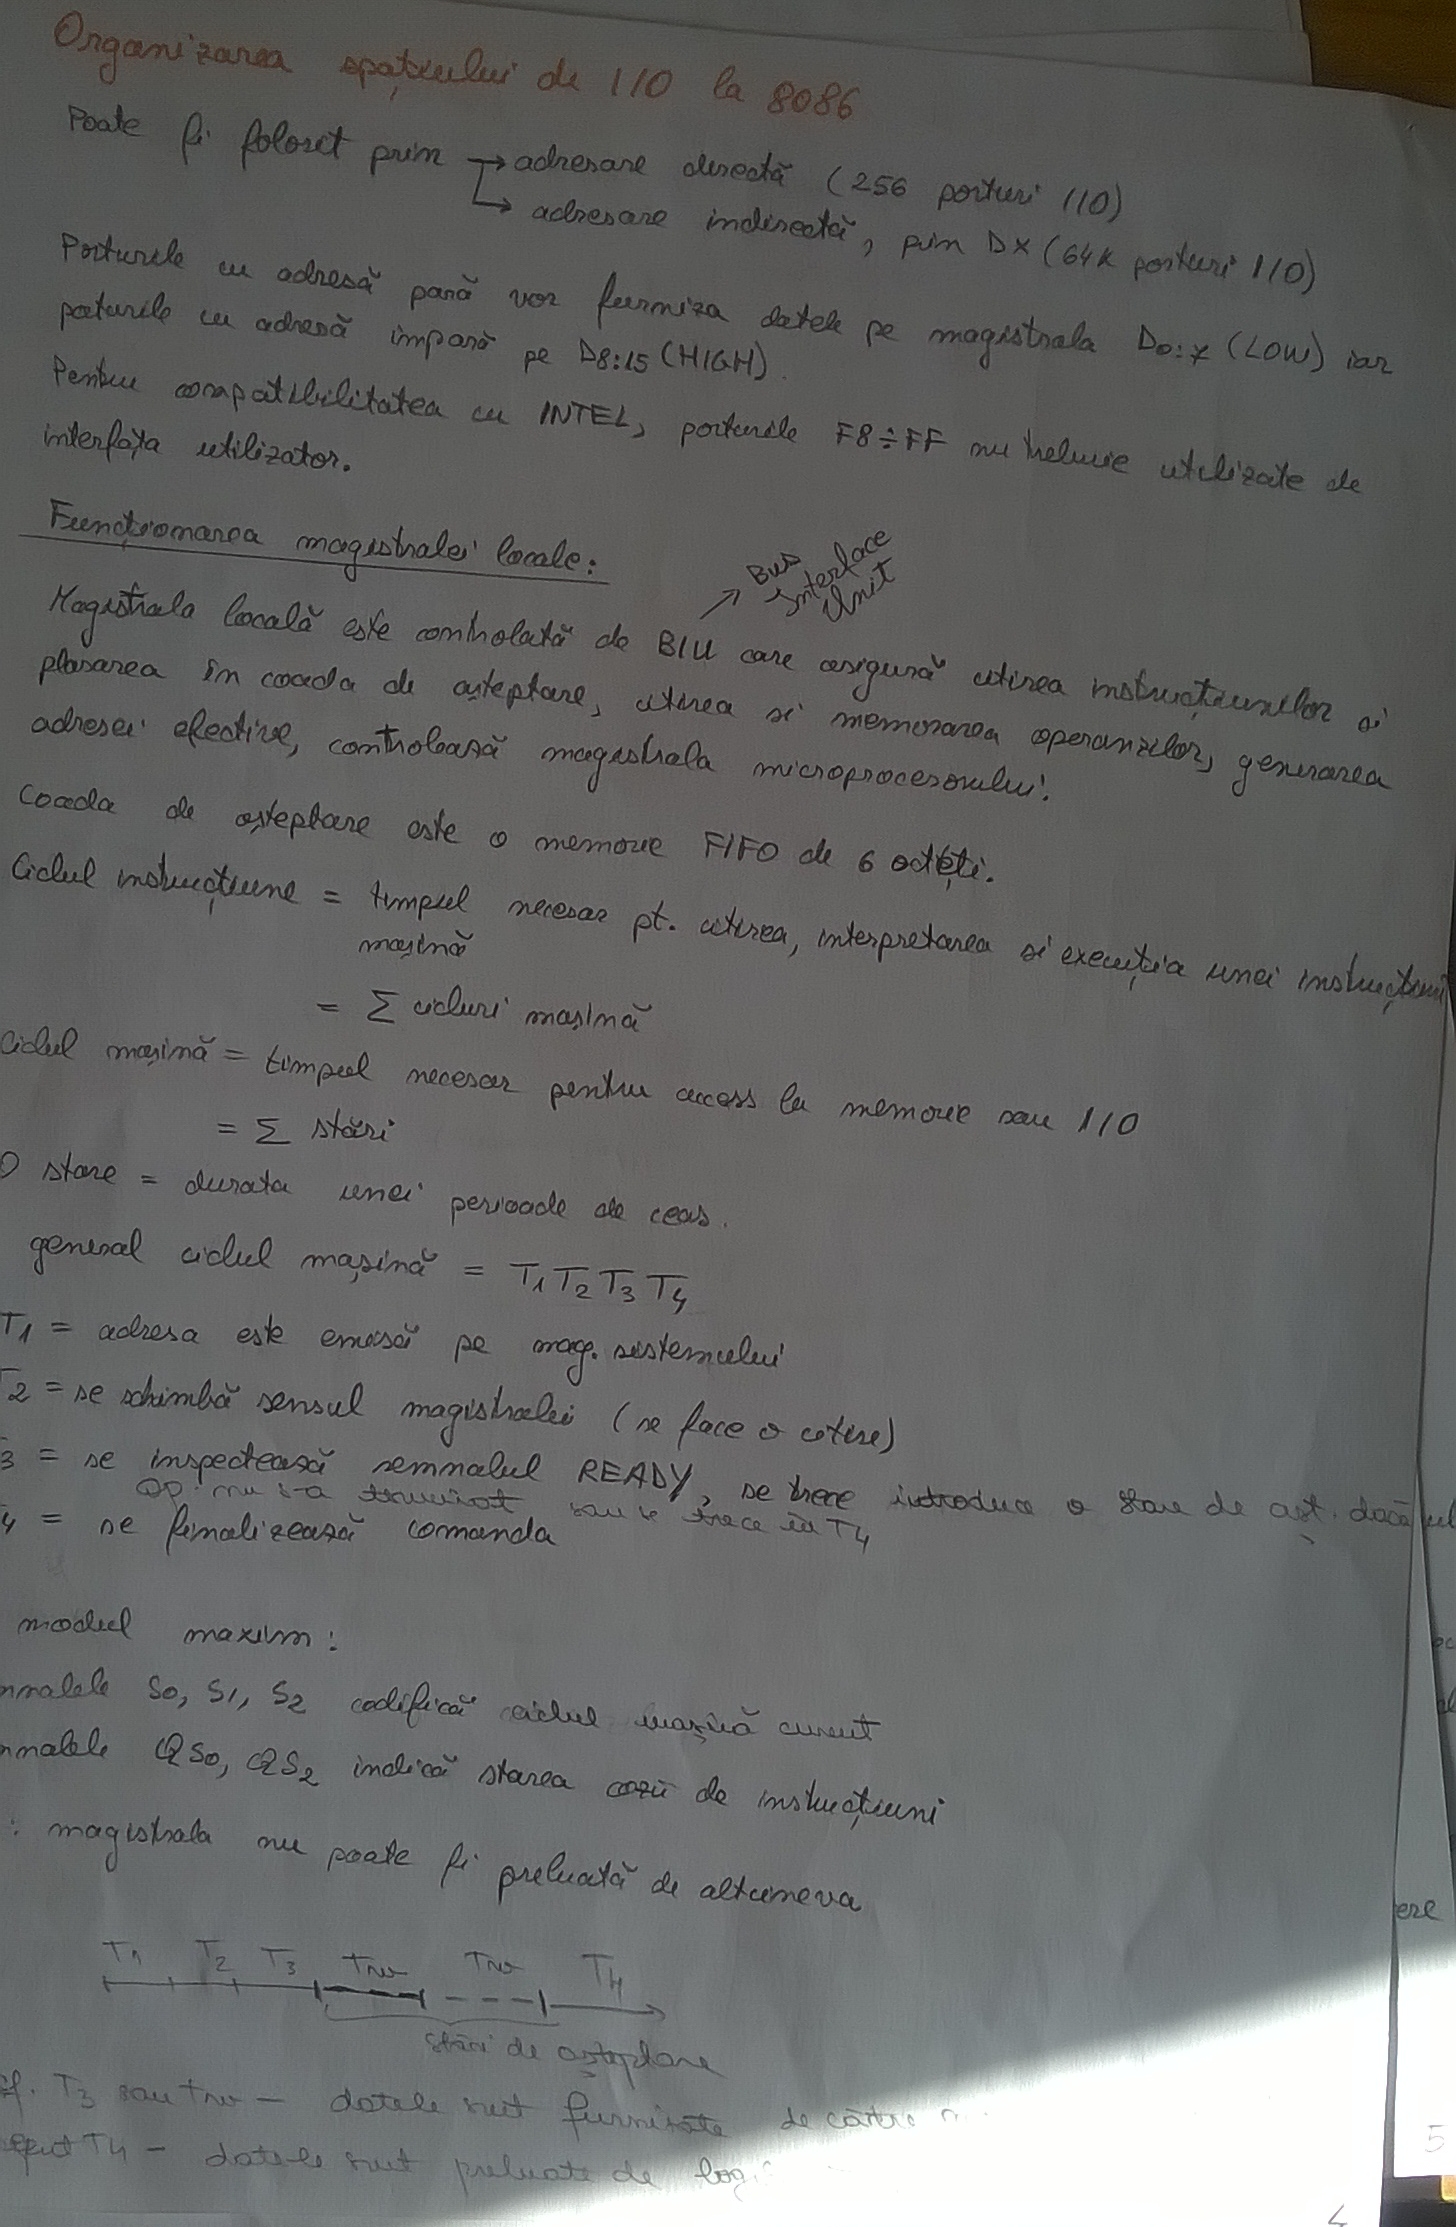 Organizarea spațiului de I/O la 8086
Poate fi folosit prin → adresare directă (256 porturi I/O)
→ adresare indirectă, prin DX (64K porturi I/O)
Porturile cu adresă pară vor furniza datele pe magistrala D0:7 (LOW) iar
porturile cu adresă impară pe D8:15 (HIGH).
Pentru compatibilitatea cu INTEL, porturile F8÷FF nu trebuie utilizate de
interfața utilizator.
Funcționarea magistralei locale:
Bus
Interface
Unit
Magistrala locală este controlată de BIU care asigură citirea instrucțiunilor și
plasarea în coada de așteptare, citirea și memorarea operanzilor, generarea
adresei efective, controlează magistrala microprocesorului.
Coada de așteptare este o memorie FIFO de 6 octeți.
Ciclul instrucțiune = timpul necesar pt. citirea, interpretarea și execuția unei instrucțiuni
mașină
= Σ cicluri mașină
Ciclul mașină = timpul necesar pentru access la memorie sau I/O
= Σ stări
O stare = durata unei perioade de ceas.
general ciclul mașină = T1 T2 T3 T4
T1 = adresa este emisă pe mag. sistemului
T2 = se schimbă sensul magistralei (se face o citire)
3 = se inspectează semnalul READY, se trece introduce o stare de așt. dacă
op. nu s-a terminat sau se trece în T4
4 = se finalizează comanda
modul maxim:
S0, S1, S2 codifică ciclul mașină curent
QS0, QS2 indică starea cozii de instrucțiuni
: magistrala nu poate fi preluată de altcineva
T1 T2 T3 Tw Tw T4
stări de așteptare
T3 sau Tw – datele sunt furnizate de către
T4 – datele sunt preluate de
5
4